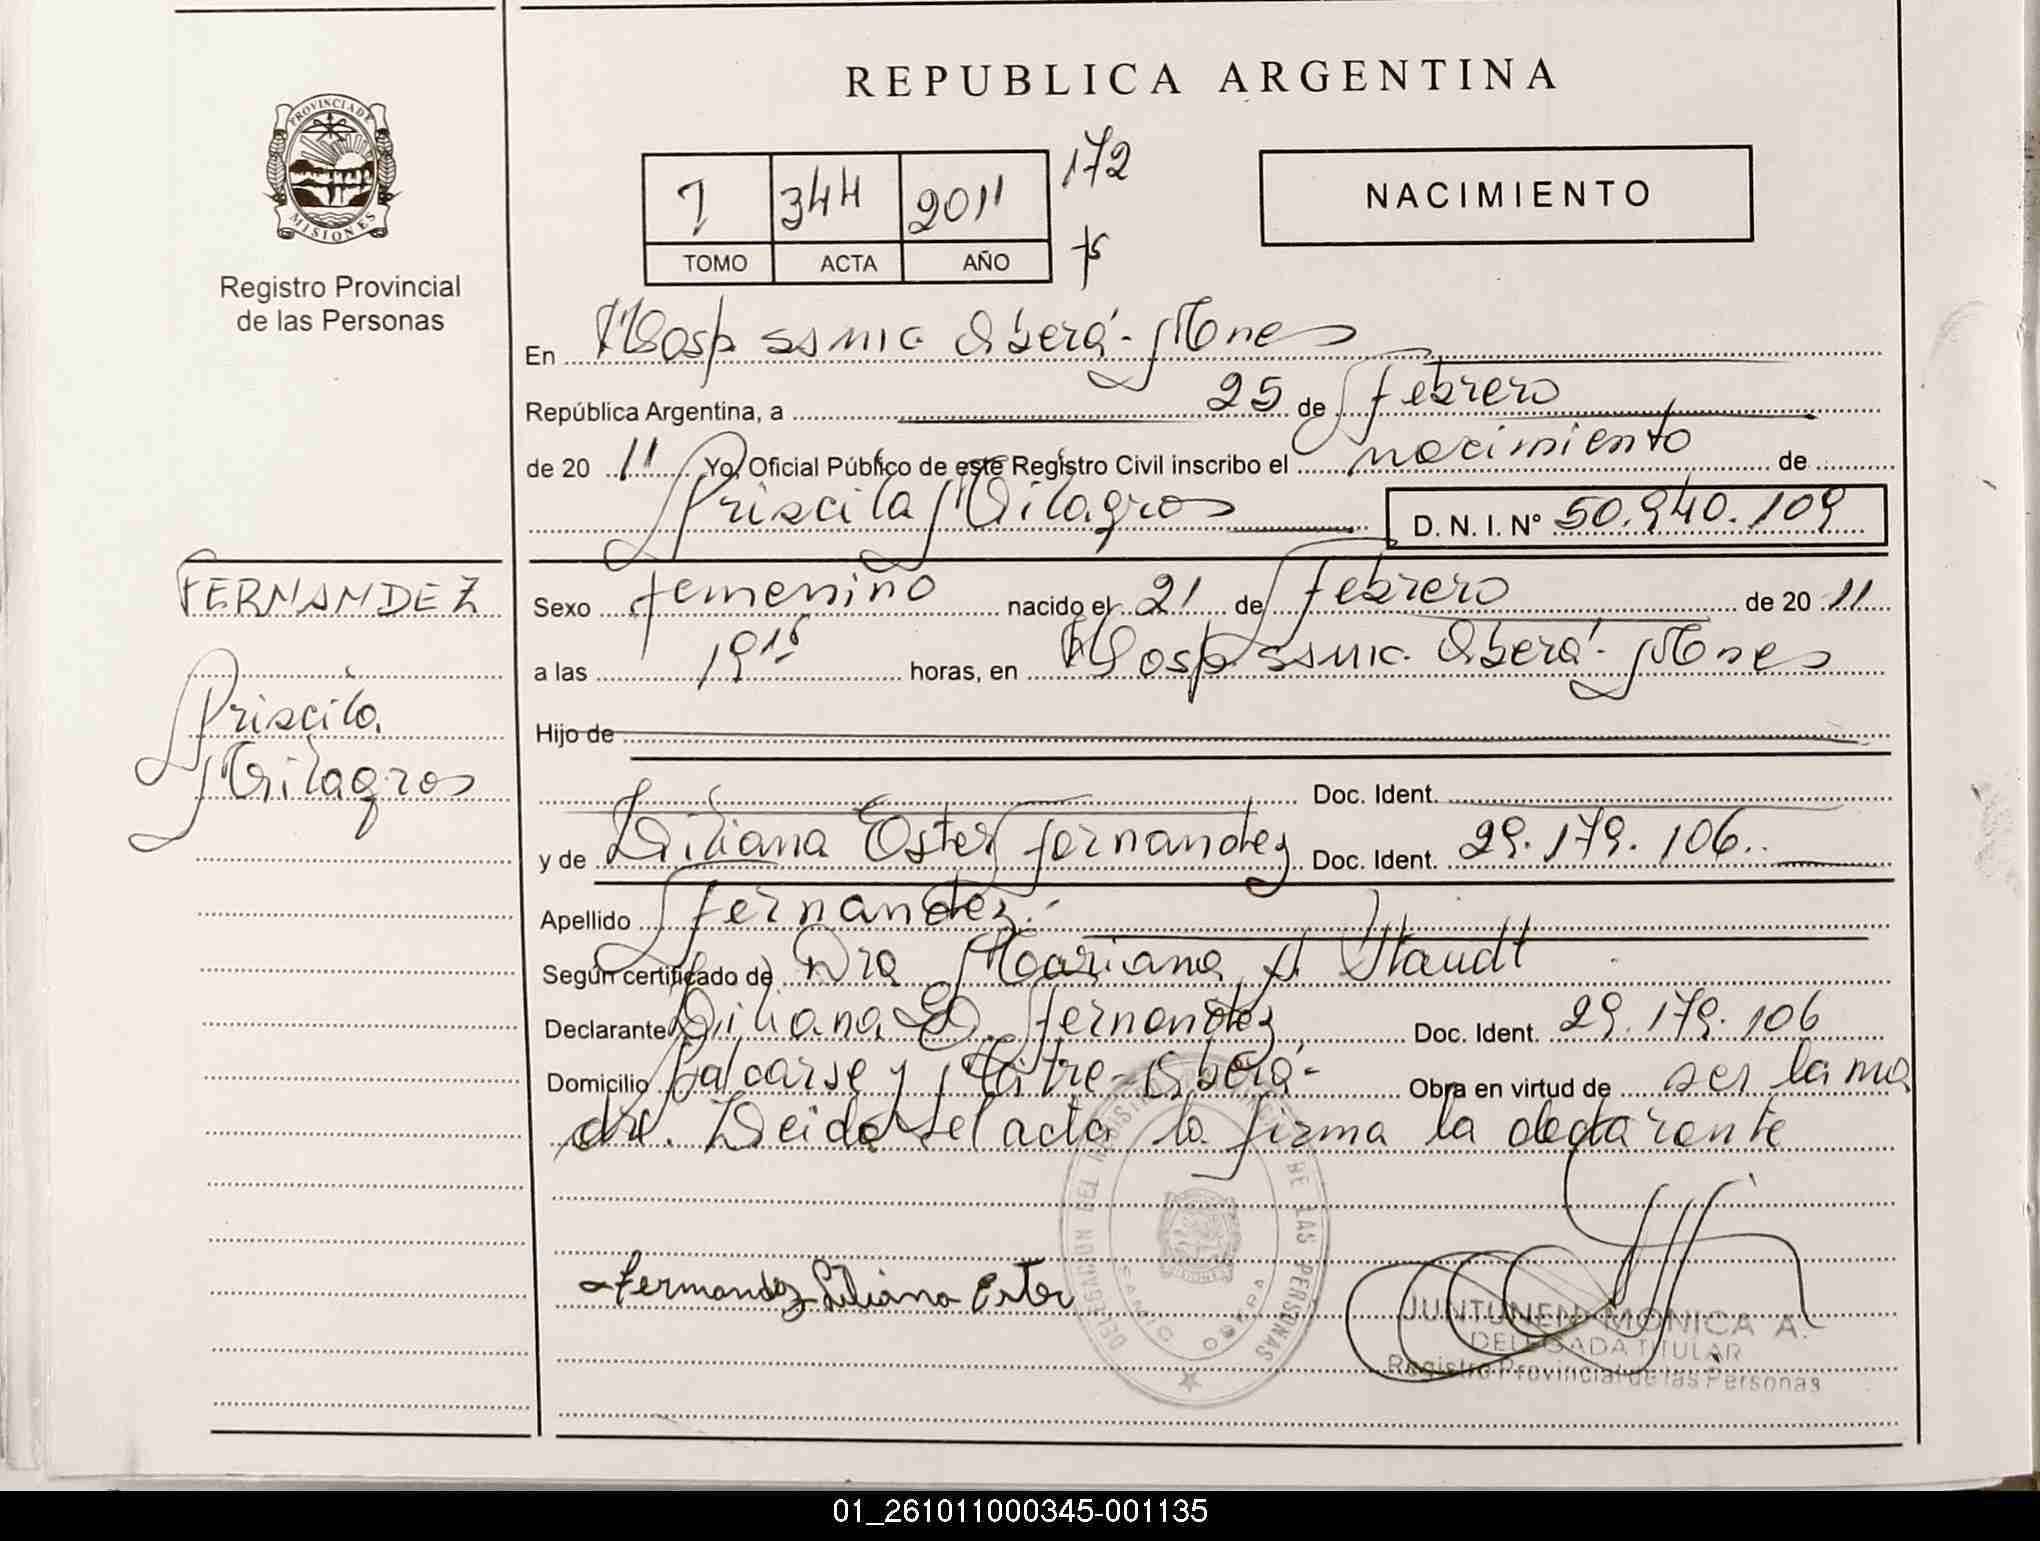 REPUBLICA ARGENTINA
PROVINCIA DE
MISIONES
Registro Provincial
de las Personas
344 2011 172
TOMO ACTA AÑO fs
NACIMIENTO
En Hosp SSMIC Oberá - Mnes
República Argentina, a 25 de febrero
de 20 11 Yo, Oficial Público de este Registro Civil inscribo el nacimiento de
Priscila Milagros D. N. I. Nº 50.940.109
FERNANDEZ
Priscila
Milagros
Sexo femenino nacido el 21 de febrero de 20 11
a las 19 15 horas, en Hosp SSMIC. Oberá - Mnes
Hijo de
Doc. Ident.
y de Liliana Ester Fernandez Doc. Ident. 29.179.106.
Apellido Fernandez.-
Según certificado de Dra Mariana A. Staudt
Declarante Liliana E. Fernandez Doc. Ident. 29.179.106
Domicilio Balcarse y Mitre - Oberá - Obra en virtud de ser la ma
dre. Leida el acta la firma la declarante
Fernandez Liliana Ester
DELEGACION DEL REGISTRO PROVINCIAL DE LAS PERSONAS
OBERA
JUNTUNEN MONICA A.
DELEGADA TITULAR
Registro Provincial de las Personas
01_261011000345-001135